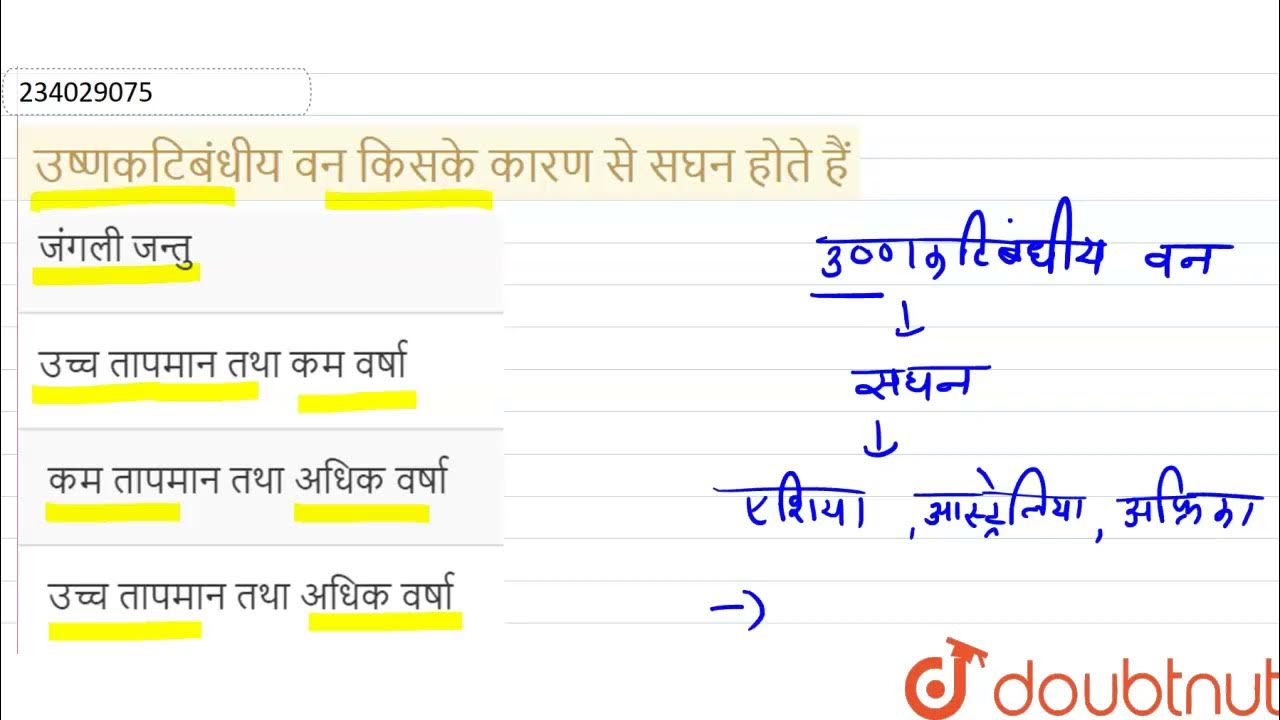 234029075
उष्णकटिबंधीय वन किसके कारण से सघन होते हैं
जंगली जन्तु
उच्च तापमान तथा कम वर्षा
कम तापमान तथा अधिक वर्षा
उच्च तापमान तथा अधिक वर्षा
उष्णकटिबंधीय वन
↓
सघन
↓
एशिया, आस्ट्रेलिया, अफ्रिका
→
doubtnut